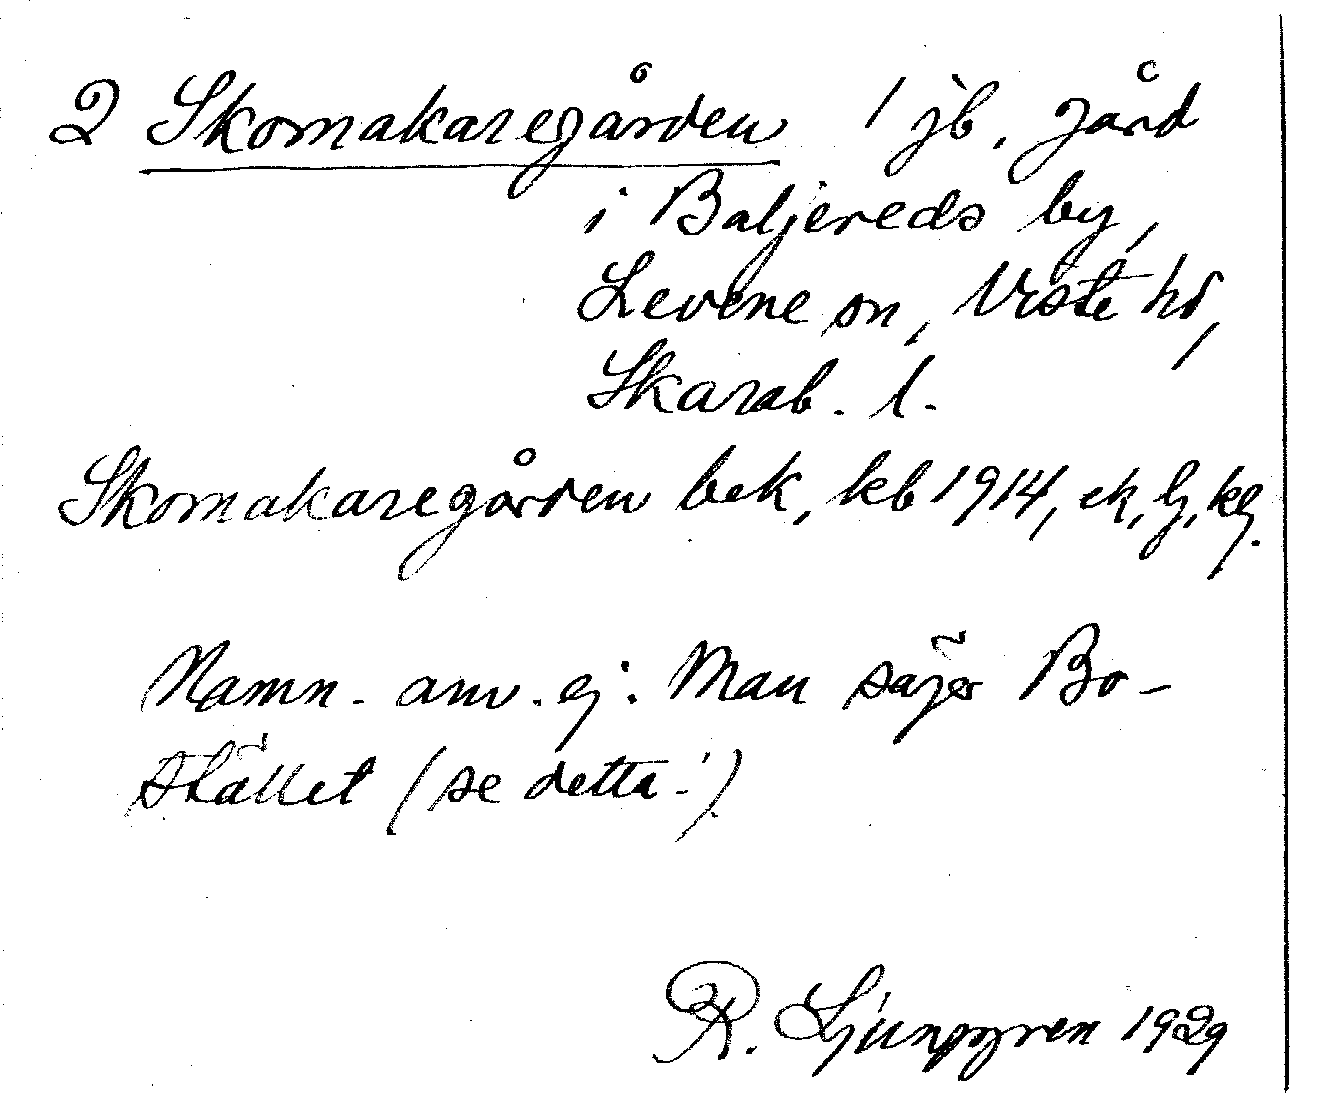 2 Skomakaregården 1 jb. gård
i Baljereds by,
Levene sn, Viste hd,
Skarab. l.
Skomakaregården bek, kb 1914, ek, lj, kg.
Namn. anv. ej. Man säger Bo-
stället (se detta!)
R. Ljunggren 1929